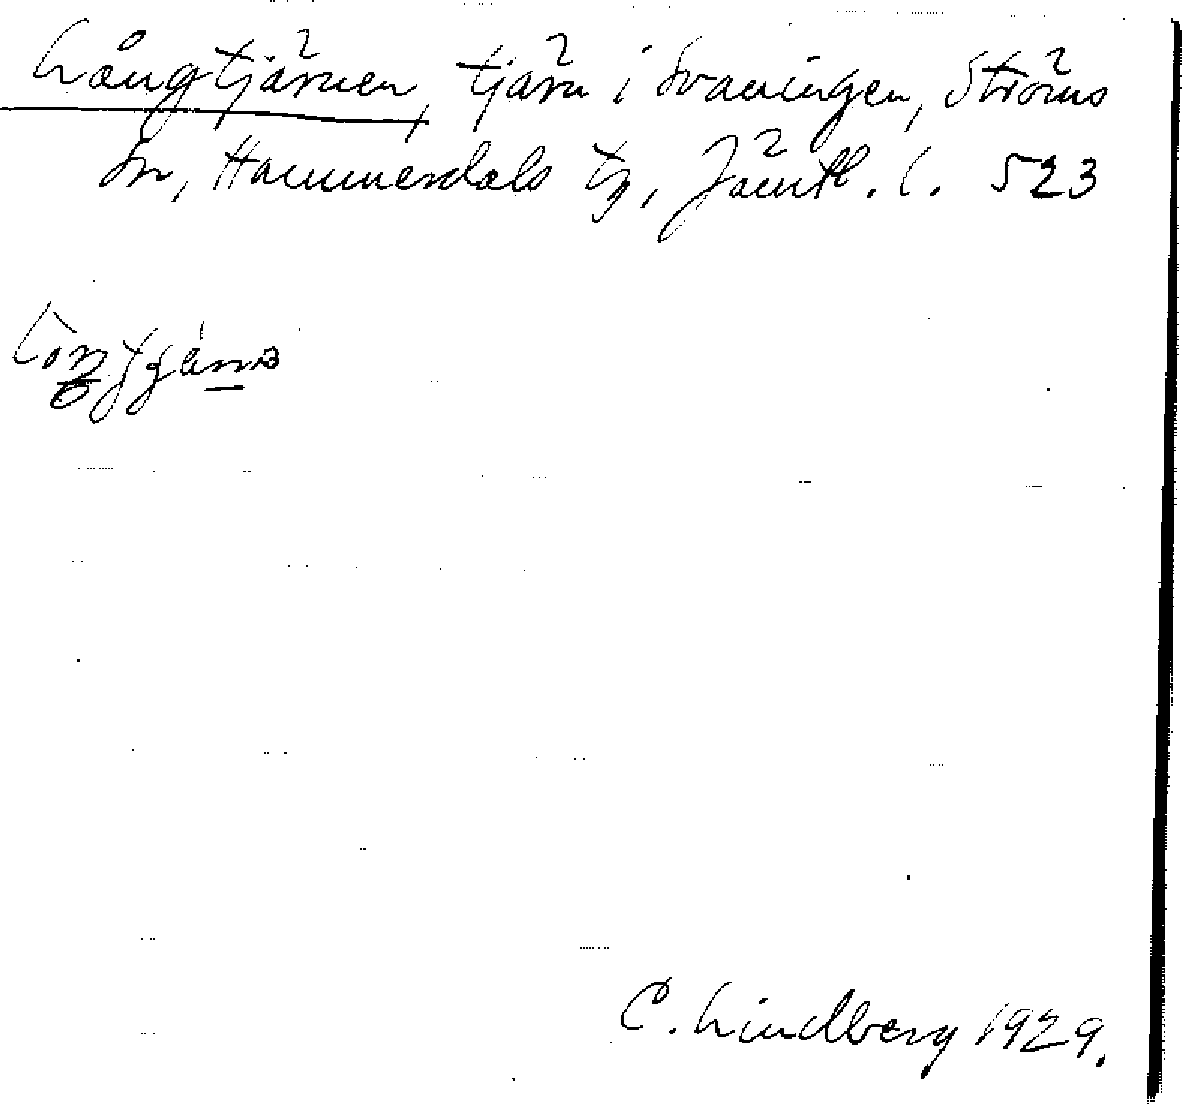 Långtjärnen, tjärn i Svaningen, Ströms
sn, Hammerdals tg, Jämtl. l. 523
C. Lindberg 1929.